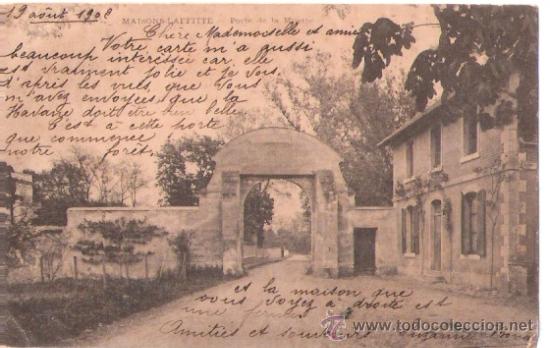 19 août 1908
MAISONS-LAFFITTE Porte de la
Chère Mademoiselle et amie
Votre carte m'a aussi
beaucoup intéressée car elle
est vraiment jolie et je vois
d'après les vues, que vous
m'avez envoyées que la
Havane doit être bien belle
C'est à cette porte
que commence
notre forêt.
et la maison que
vous voyez à droite est
une ferme
Amitiés et souvenirs Suzanne
www.todocoleccion.net